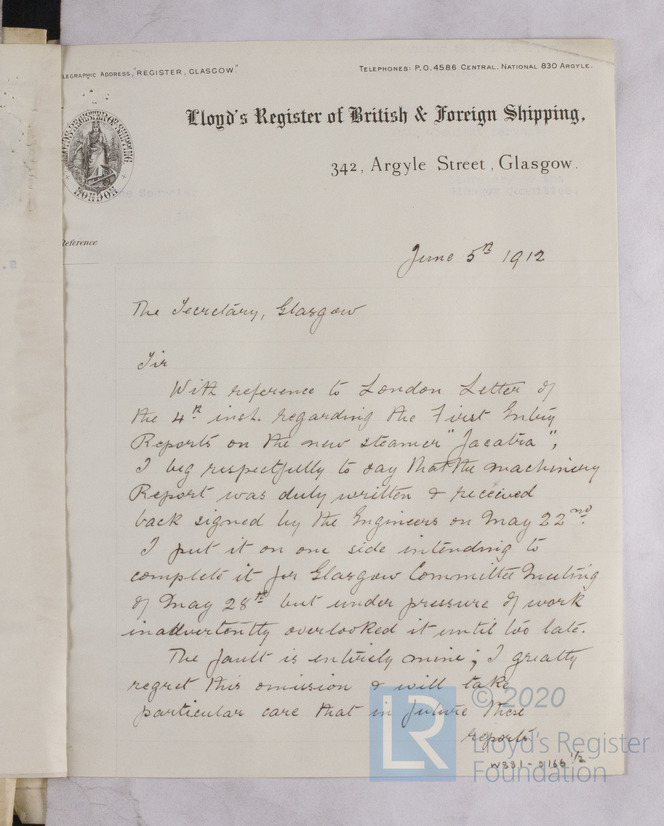 TELEGRAPHIC ADDRESS, "REGISTER, GLASGOW."
TELEPHONES: P.O. 4586 CENTRAL. NATIONAL 830 ARGYLE.
Lloyd's Register of British & Foreign Shipping,
342, Argyle Street, Glasgow.
LONDON
Reference
June 5th 1912
The Secretary, Glasgow
Sir
With reference to London Letter of
the 4th inst. regarding the First Entry
Reports on the new steamer "Jacatra",
I beg respectfully to say that the machinery
Report was duly written & received
back signed by the Engineers on May 22nd.
I put it on one side intending to
complete it for Glasgow Committee Meeting
of May 28th but under pressure of work
inadvertently overlooked it until too late.
The fault is entirely mine; I greatly
regret this omission & will take
particular care that in future these
reports
© 2020
LR
Lloyd's Register
Foundation
W331-0166 1/2